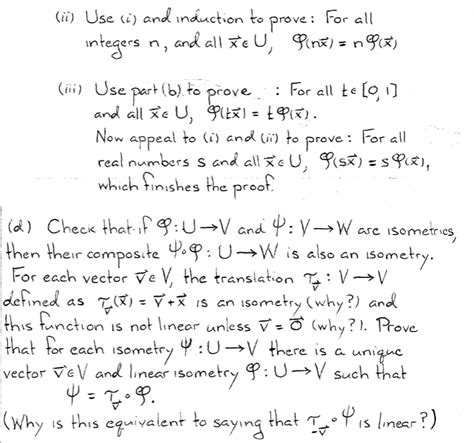 (ii) Use (i) and induction to prove: For all
integers n, and all x⃗ ∈ U, φ(nx⃗) = nφ(x⃗)
(iii) Use part (b) to prove : For all t ∈ [0,1]
and all x⃗ ∈ U, φ(tx⃗) = tφ(x⃗).
Now appeal to (i) and (ii) to prove: For all
real numbers s and all x⃗ ∈ U, φ(sx⃗) = sφ(x⃗),
which finishes the proof.
(d) Check that if φ: U→V and ψ: V→W are isometries,
then their composite ψ∘φ: U→W is also an isometry.
For each vector v⃗ ∈ V, the translation τ_v⃗ : V→V
defined as τ_v⃗(x⃗) = v⃗+x⃗ is an isometry (why?) and
this function is not linear unless v⃗ = 0⃗ (why?). Prove
that for each isometry ψ: U→V there is a unique
vector v⃗ ∈ V and linear isometry φ: U→V such that
ψ = τ_v⃗ ∘ φ.
(Why is this equivalent to saying that τ_-v⃗ ∘ ψ is linear?)